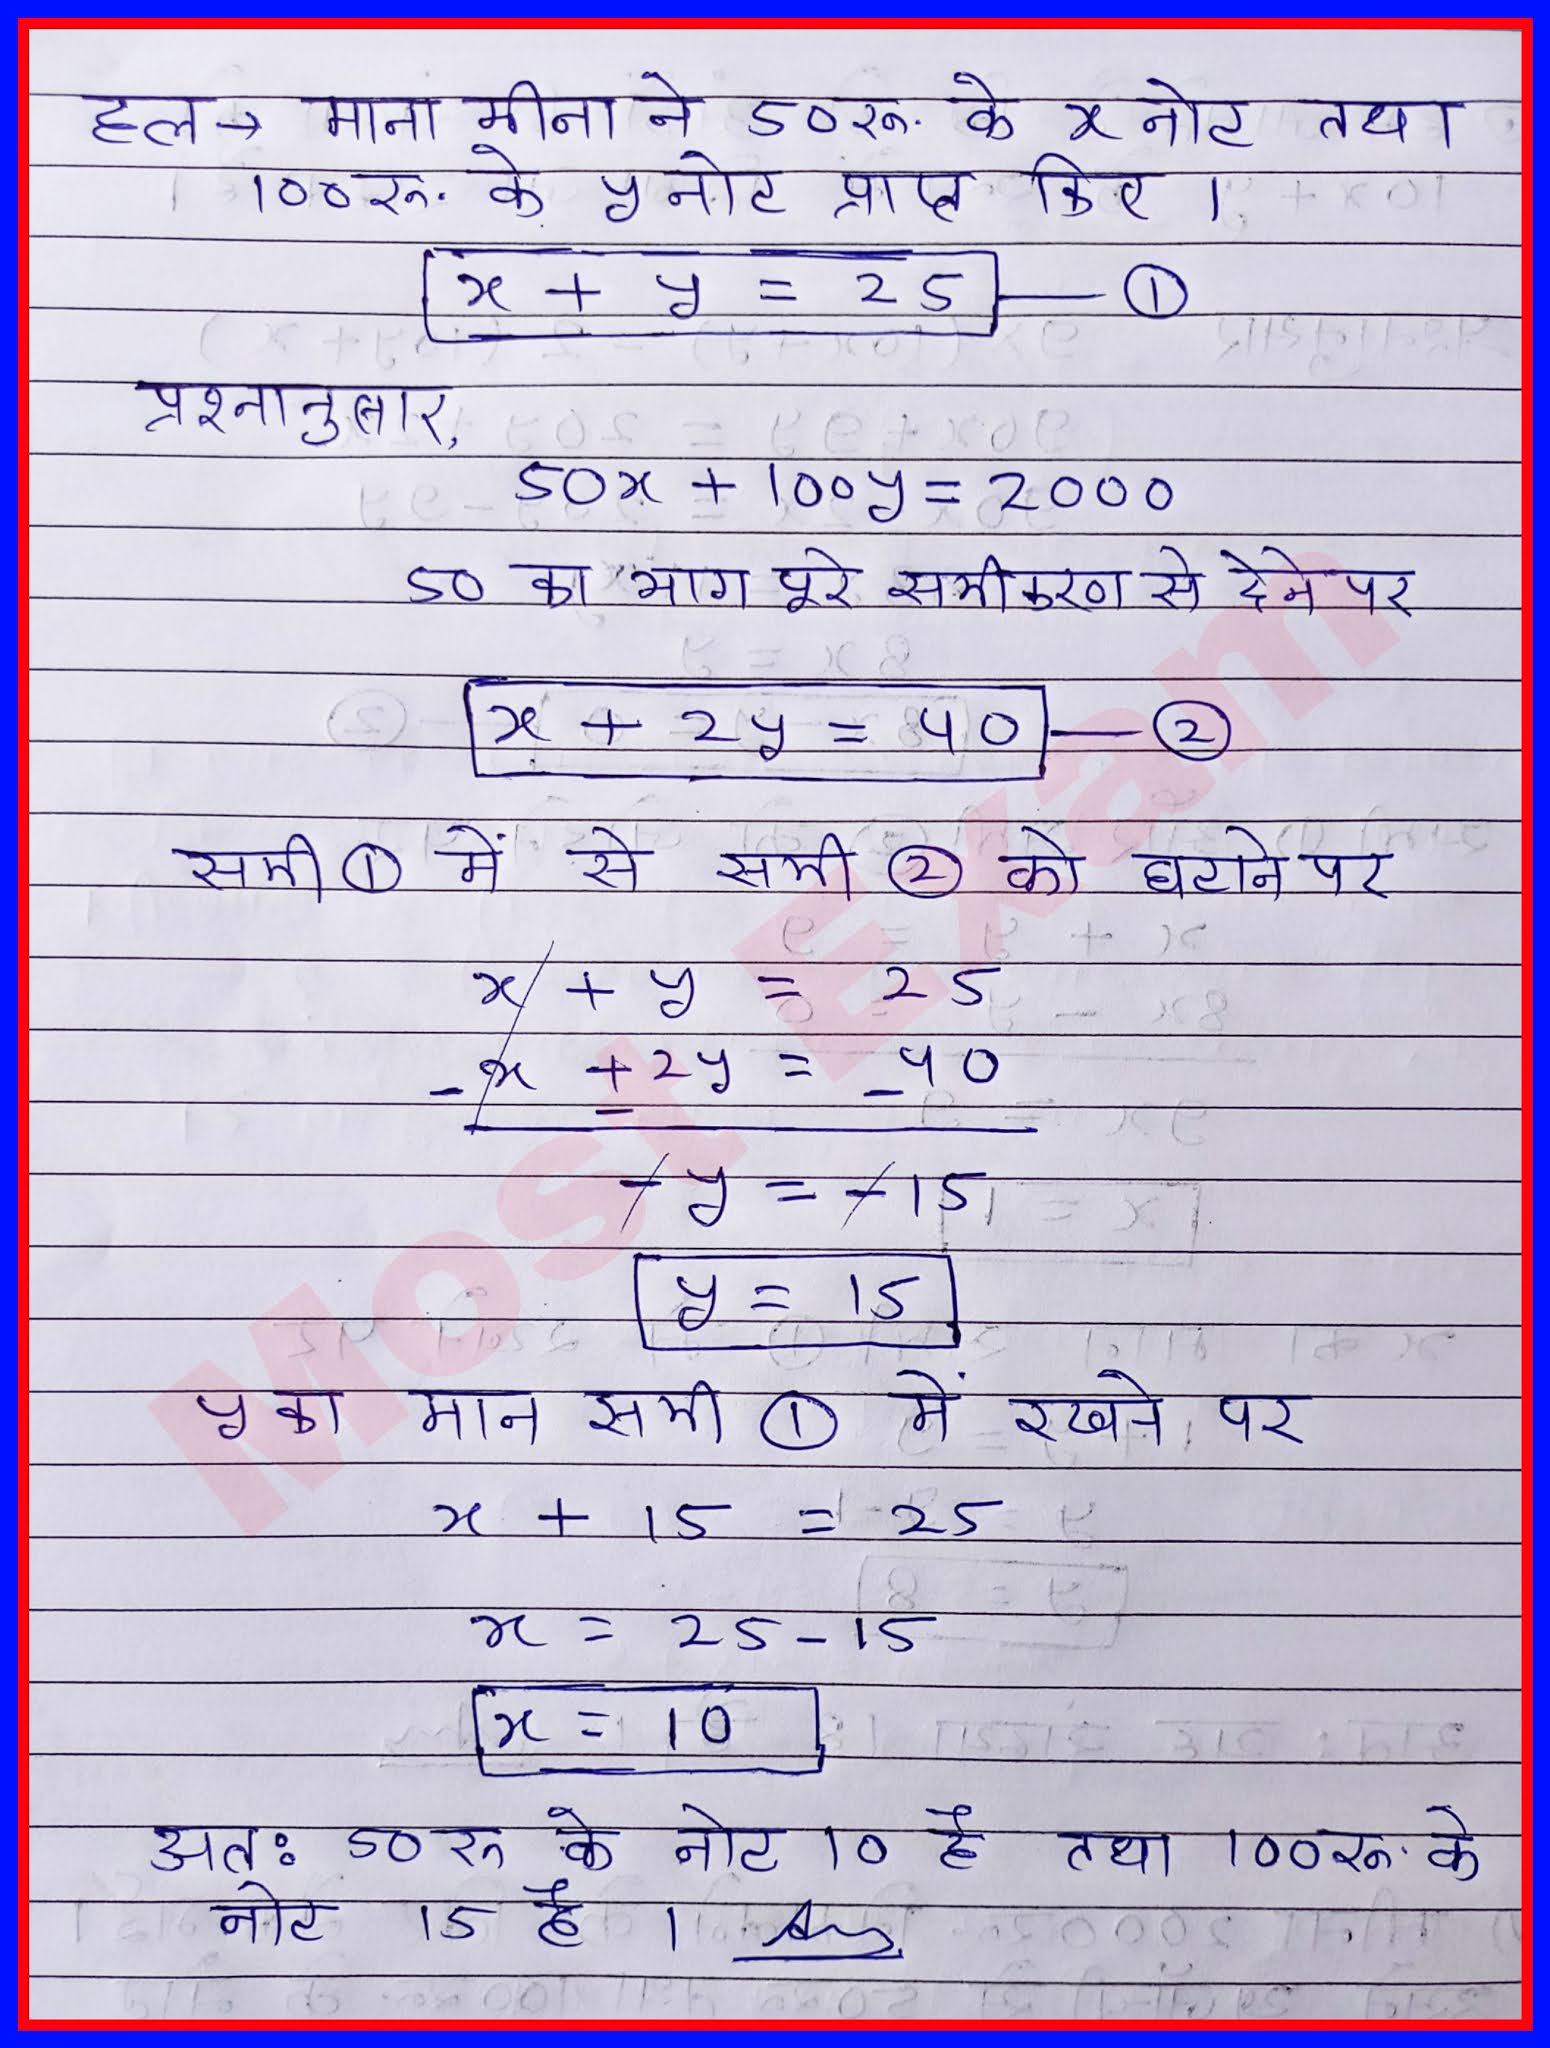 हल → माना मीना ने 50रू. के x नोट तथा
100रू. के y नोट प्राप्त किए ।
x + y = 25 — ①
प्रश्नानुसार,
50x + 100y = 2000
50 का भाग पूरे समीकरण से देने पर
x + 2y = 40 — ②
समी ① में से समी ② को घटाने पर
x + y = 25
- x + 2y = - 40
-
- y = - 15
y = 15
y का मान समी ① में रखने पर
x + 15 = 25
x = 25 - 15
x = 10
अतः 50रू के नोट 10 है तथा 100रू. के
नोट 15 है । Ans
Most Exam